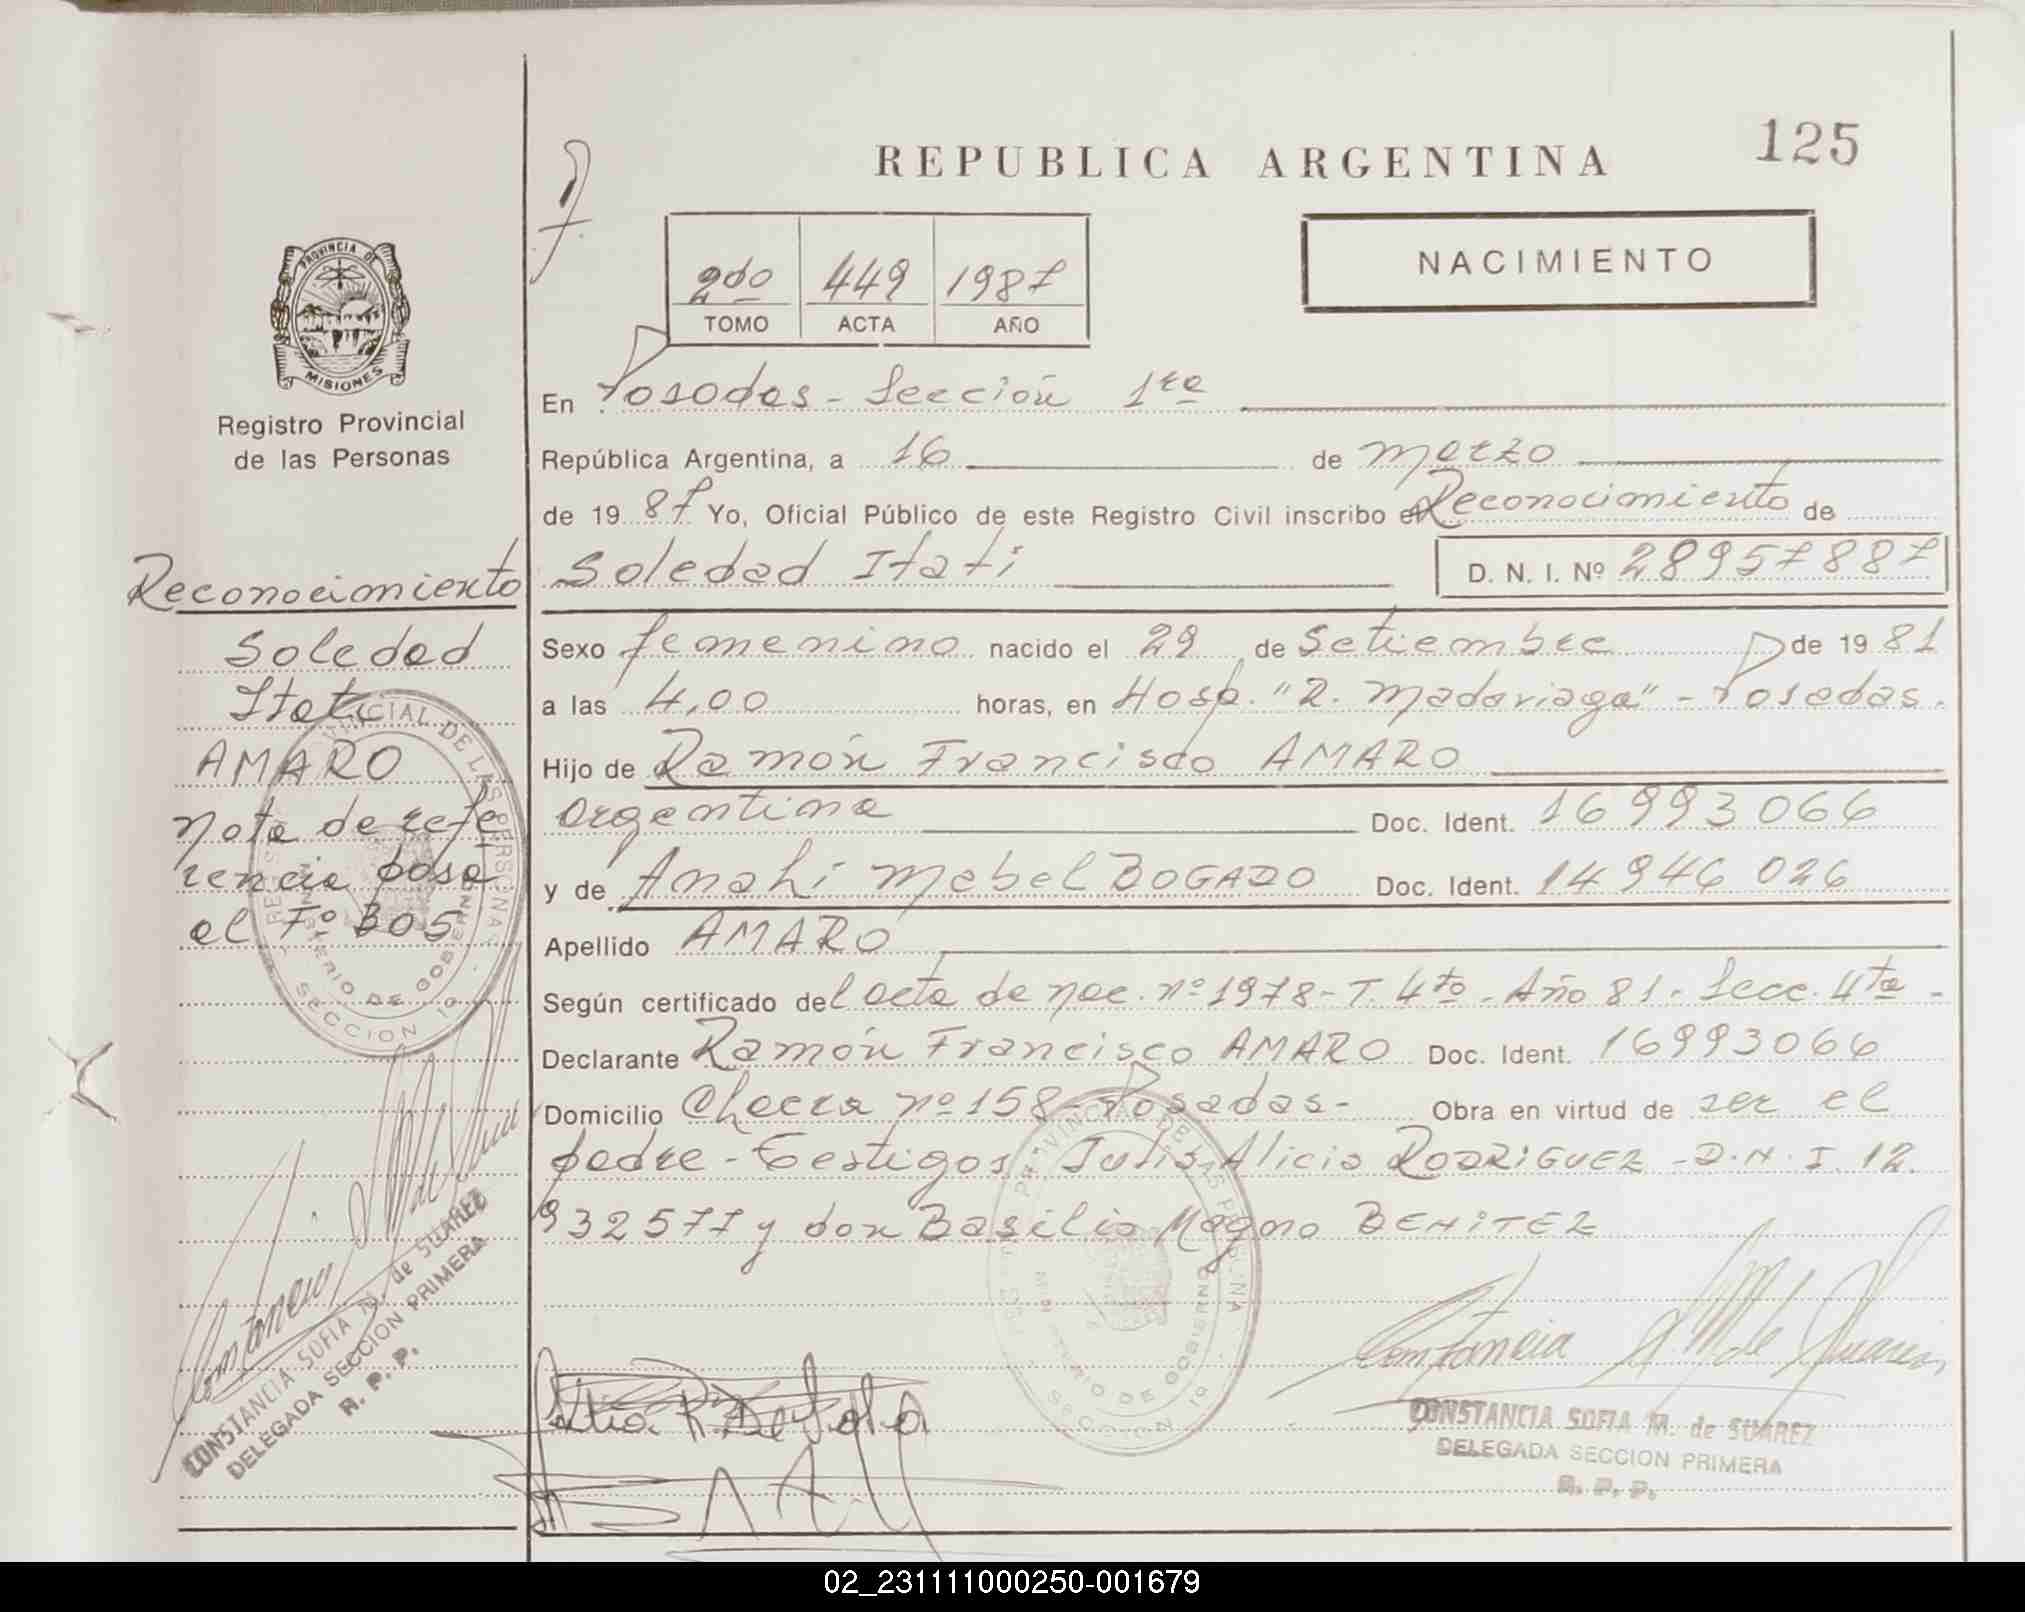 REPUBLICA ARGENTINA
125
NACIMIENTO
2do 449 1987
TOMO ACTA AÑO
PROVINCIA DE
MISIONES
Registro Provincial
de las Personas
Reconocimiento
Soledad
Itati
AMARO
Nota de refe
rencia pasa
al Fº 305
En Posadas - Sección 1ra
República Argentina, a 16 de Marzo
de 1987 Yo, Oficial Público de este Registro Civil inscribo el Reconocimiento de
Soledad Itatí D. N. I. Nº 28957887
Sexo femenino nacido el 29 de Setiembre de 1981
a las 4,00 horas, en Hosp. "R. Madariaga" - Posadas.
Hijo de Ramón Francisco AMARO
argentina Doc. Ident. 16993066
y de Anahí Mabel BOGADO Doc. Ident. 14946026
Apellido AMARO
Según certificado del acta de nac. nº 1978 - T. 4to - Año 81 - Secc. 4ta -
Declarante Ramón Francisco AMARO Doc. Ident. 16993066
Domicilio Chacra nº 158 - Posadas - Obra en virtud de ser el
padre - Testigos Julia Alicia RODRIGUEZ - D.N.I. 12.
932577 y don Basilio Magno BENITEZ
PROVINCIAL DE LAS PERSONAS
MINISTERIO DE GOBIERNO
SECCION 1º
CONSTANCIA SOFIA M. de SUAREZ
DELEGADA SECCION PRIMERA
R. P. P.
PROVINCIAL DE LAS PERSONAS
MINISTERIO DE GOBIERNO
SECCION 1º
Constancia S. M de Suarez
CONSTANCIA SOFIA M. de SUAREZ
DELEGADA SECCION PRIMERA
R. P. P.
02_231111000250-001679